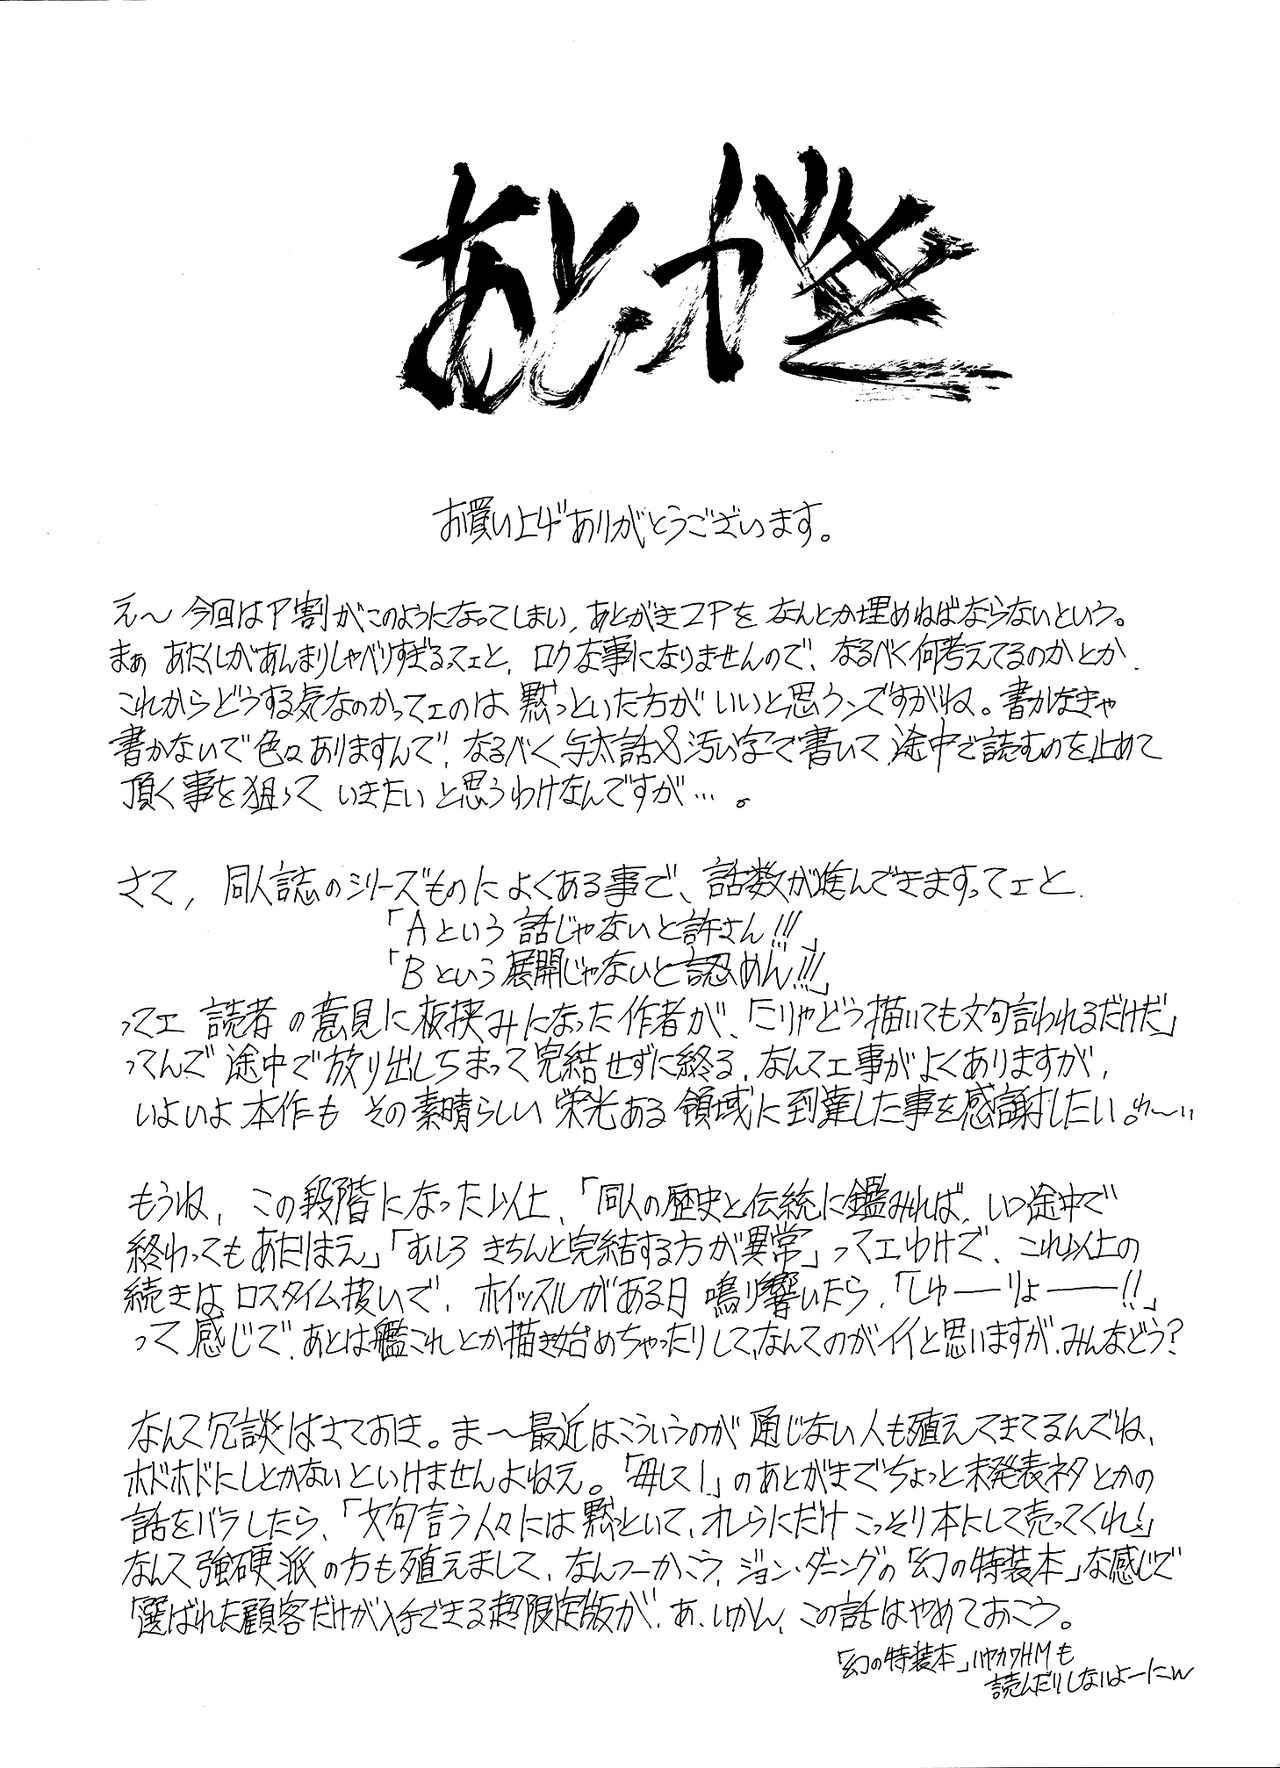 あとがき
お買い上げありがとうございます。
え～今回はP割がこのようになってしまい、あとがき2Pを なんとか埋めねばならないという。
まぁ あたくしがあんまりしゃべりすぎるってェと、ロクな事になりませんので、なるべく何考えてるのかとか、
これからどうする気なのかってェのは 黙っといた方が いいと思うンですがね。書かなきゃ
書かないで色々ありますんで、なるべく与太話&汚い字で書いて 途中で読むのを止めて
頂く事を狙って いきたいと思うわけなんですが…。
さて、同人誌のシリーズものによくある事で、話数が進んできますってェと、
「Aという話じゃないと許さん!!!」
「Bという展開じゃないと認めん!!!」
ってェ 読者の意見に板挟みになった作者が、「こりゃどう描いても文句言われるだけだ」
ってんで途中で放り出しちまって完結せずに終る、なんてェ事がよくありますが、
いよいよ本作も その素晴らしい栄光ある領域に到達した事を感謝したい。わ～い
もうね、この段階になった以上、「同人の歴史と伝統に鑑みれば、いつ途中で
終わってもあたりまえ」「むしろ きちんと完結する方が異常」ってェわけで、これ以上の
続きは ロスタイム扱いで、ホイッスルがある日 鳴り響いたら、「しゅーーりょーーー!!」
って感じで、あとは艦これとか描き始めちゃったりして、なんてのがイイと思いますが、みんなどう?
なんて冗談はさておき。ま～最近はこういうのが 通じない人も殖えてきてるんでね、
ホドホドにしとかないといけませんよねえ。「毎して！」のあとがきでちょっと未発表ネタとかの
話をバラしたら、「文句言う人々には黙っといて、オレらにだけこっそり本にして売ってくれ！」
なんて強硬派の方も殖えまして、なんつーかこう、ジョン・ダニングの「幻の特装本」な感じで
「選ばれた顧客だけが入手できる超限定版が、あ、いかん、この話はやめておこう。
「幻の特装本」ハヤカワHMも
読んだりしないよーにw